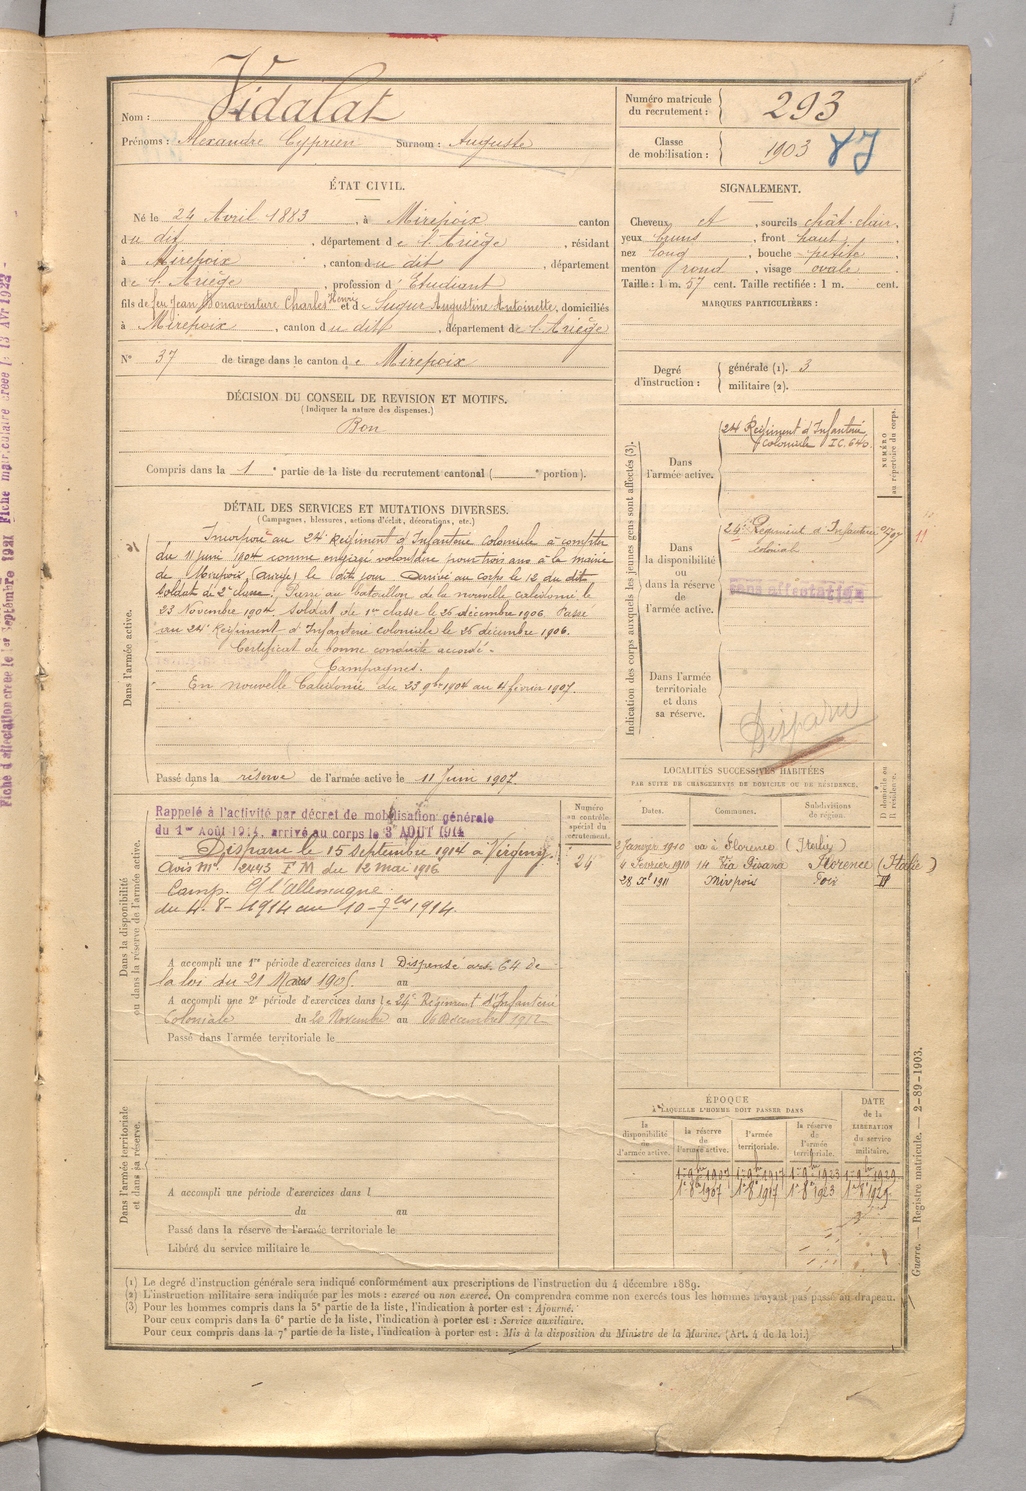 Nom : Vidalat
Prénoms : Alexandre Cyprien Surnom : Auguste
Numéro matricule du recrutement : 293
Classe de mobilisation : 1903
ÉTAT CIVIL.
Né le 24 Avril 1883, à Mirepoix canton
du dit, département de l'Ariège, résidant
à Mirepoix, canton du dit, département
de l'Ariège, profession d'Etudiant
fils de feu Jean Bonaventure Charles Henri et de Sugur Augustine Antoinette, domiciliés
à Mirepoix, canton du dit, département de l'Ariège
N° 37 de tirage dans le canton de Mirepoix
SIGNALEMENT.
Cheveux et, sourcils chât. clair,
yeux bruns, front haut,
nez long, bouche petite,
menton rond, visage ovale.
Taille : 1 m. 57 cent. Taille rectifiée : 1 m. cent.
MARQUES PARTICULIÈRES :
Degré d'instruction : générale (1). 3
militaire (2).
DÉCISION DU CONSEIL DE REVISION ET MOTIFS.
(Indiquer la nature des dispenses.)
Bon
Compris dans la 1e partie de la liste du recrutement cantonal ( e portion).
DÉTAIL DES SERVICES ET MUTATIONS DIVERSES.
(Campagnes, blessures, actions d'éclat, décorations, etc.)
Dans l'armée active.
Incorporé au 24e Régiment d'Infanterie coloniale à compter
du 11 juin 1904 comme engagé volontaire pour trois ans à la mairie
de Mirepoix (Ariège) le dit jour. Arrivé au corps le 12 du dit,
soldat de 2e classe. Passé au bataillon de la nouvelle calédonie le
23 Novembre 1904. Soldat de 1re classe le 26 décembre 1906. Passé
au 24e Régiment d'Infanterie coloniale le 25 décembre 1906.
Certificat de bonne conduite accordé.
Campagnes.
En nouvelle Calédonie du 23 9bre 1904 au 4 février 1907.
Passé dans la réserve de l'armée active le 11 Juin 1907
Indication des corps auxquels les jeunes gens sont affectés (3).
NUMÉRO au répertoire du corps.
Dans l'armée active.
24e Régiment d'Infanterie
coloniale I.C. 640.
Dans la disponibilité ou dans la réserve de l'armée active.
24e Régiment d'Infanterie
coloniale
Sans affectation
11
Dans l'armée territoriale et dans sa réserve.
Disparu
Dans la disponibilité ou dans la réserve de l'armée active.
Rappelé à l'activité par décret de mobilisation générale
du 1er Août 1914, arrivé au corps le 3 AOUT 1914
Disparu le 15 septembre 1914 à Virginy.
Avis Ml 12443 F M du 12 mai 1916
Camp. C/ l'Allemagne.
du 4-8-1914 au 10-7bre 1914.
A accompli une 1re période d'exercices dans l Dispensé art. 64 de
la loi du 21 Mars 1905. au
A accompli une 2e période d'exercices dans le 24e Régiment d'Infanterie
Coloniale du 20 Novembre au 6 Décembre 1912
Passé dans l'armée territoriale le
Numéro au contrôle spécial du recrutement.
24
LOCALITÉS SUCCESSIVES HABITÉES
PAR SUITE DE CHANGEMENTS DE DOMICILE OU DE RÉSIDENCE.
Dates. Communes. Subdivisions de région. D domicile ou R résidence.
2 Janvier 1910 va à Florence (Italie)
4 Février 1910 14 Via Pisana Florence (Italie)
28 Xe 1911 Mirepoix Foix D
Dans l'armée territoriale et dans sa réserve.
A accompli une période d'exercices dans l
du au
Passé dans la réserve de l'armée territoriale le
Libéré du service militaire le
ÉPOQUE
À LAQUELLE L'HOMME DOIT PASSER DANS
la disponibilité de l'armée active. la réserve de l'armée active. l'armée territoriale. la réserve de l'armée territoriale. DATE de la LIBÉRATION du service militaire.
1er 9bre 1907 1er 9bre 1917 1er 9bre 1923 1er 9bre 1929
1er 8bre 1907 1er 8bre 1917 1er 8bre 1923 1er 8bre 1929
(1) Le degré d'instruction générale sera indiqué conformément aux prescriptions de l'instruction du 4 décembre 1889.
(2) L'instruction militaire sera indiquée par les mots : exercé ou non exercé. On comprendra comme non exercés tous les hommes n'ayant pas passé au drapeau.
(3) Pour les hommes compris dans la 5e partie de la liste, l'indication à porter est : Ajourné.
Pour ceux compris dans la 6e partie de la liste, l'indication à porter est : Service auxiliaire.
Pour ceux compris dans la 7e partie de la liste, l'indication à porter est : Mis à la disposition du Ministre de la Marine. (Art. 4 de la loi.)
Guerre. — Registre matricule. — 2-89-1903.
Fiche d'affectation créée le 1er Septembre 1921 Fiche matriculaire créée le 13 Avr 1922 -